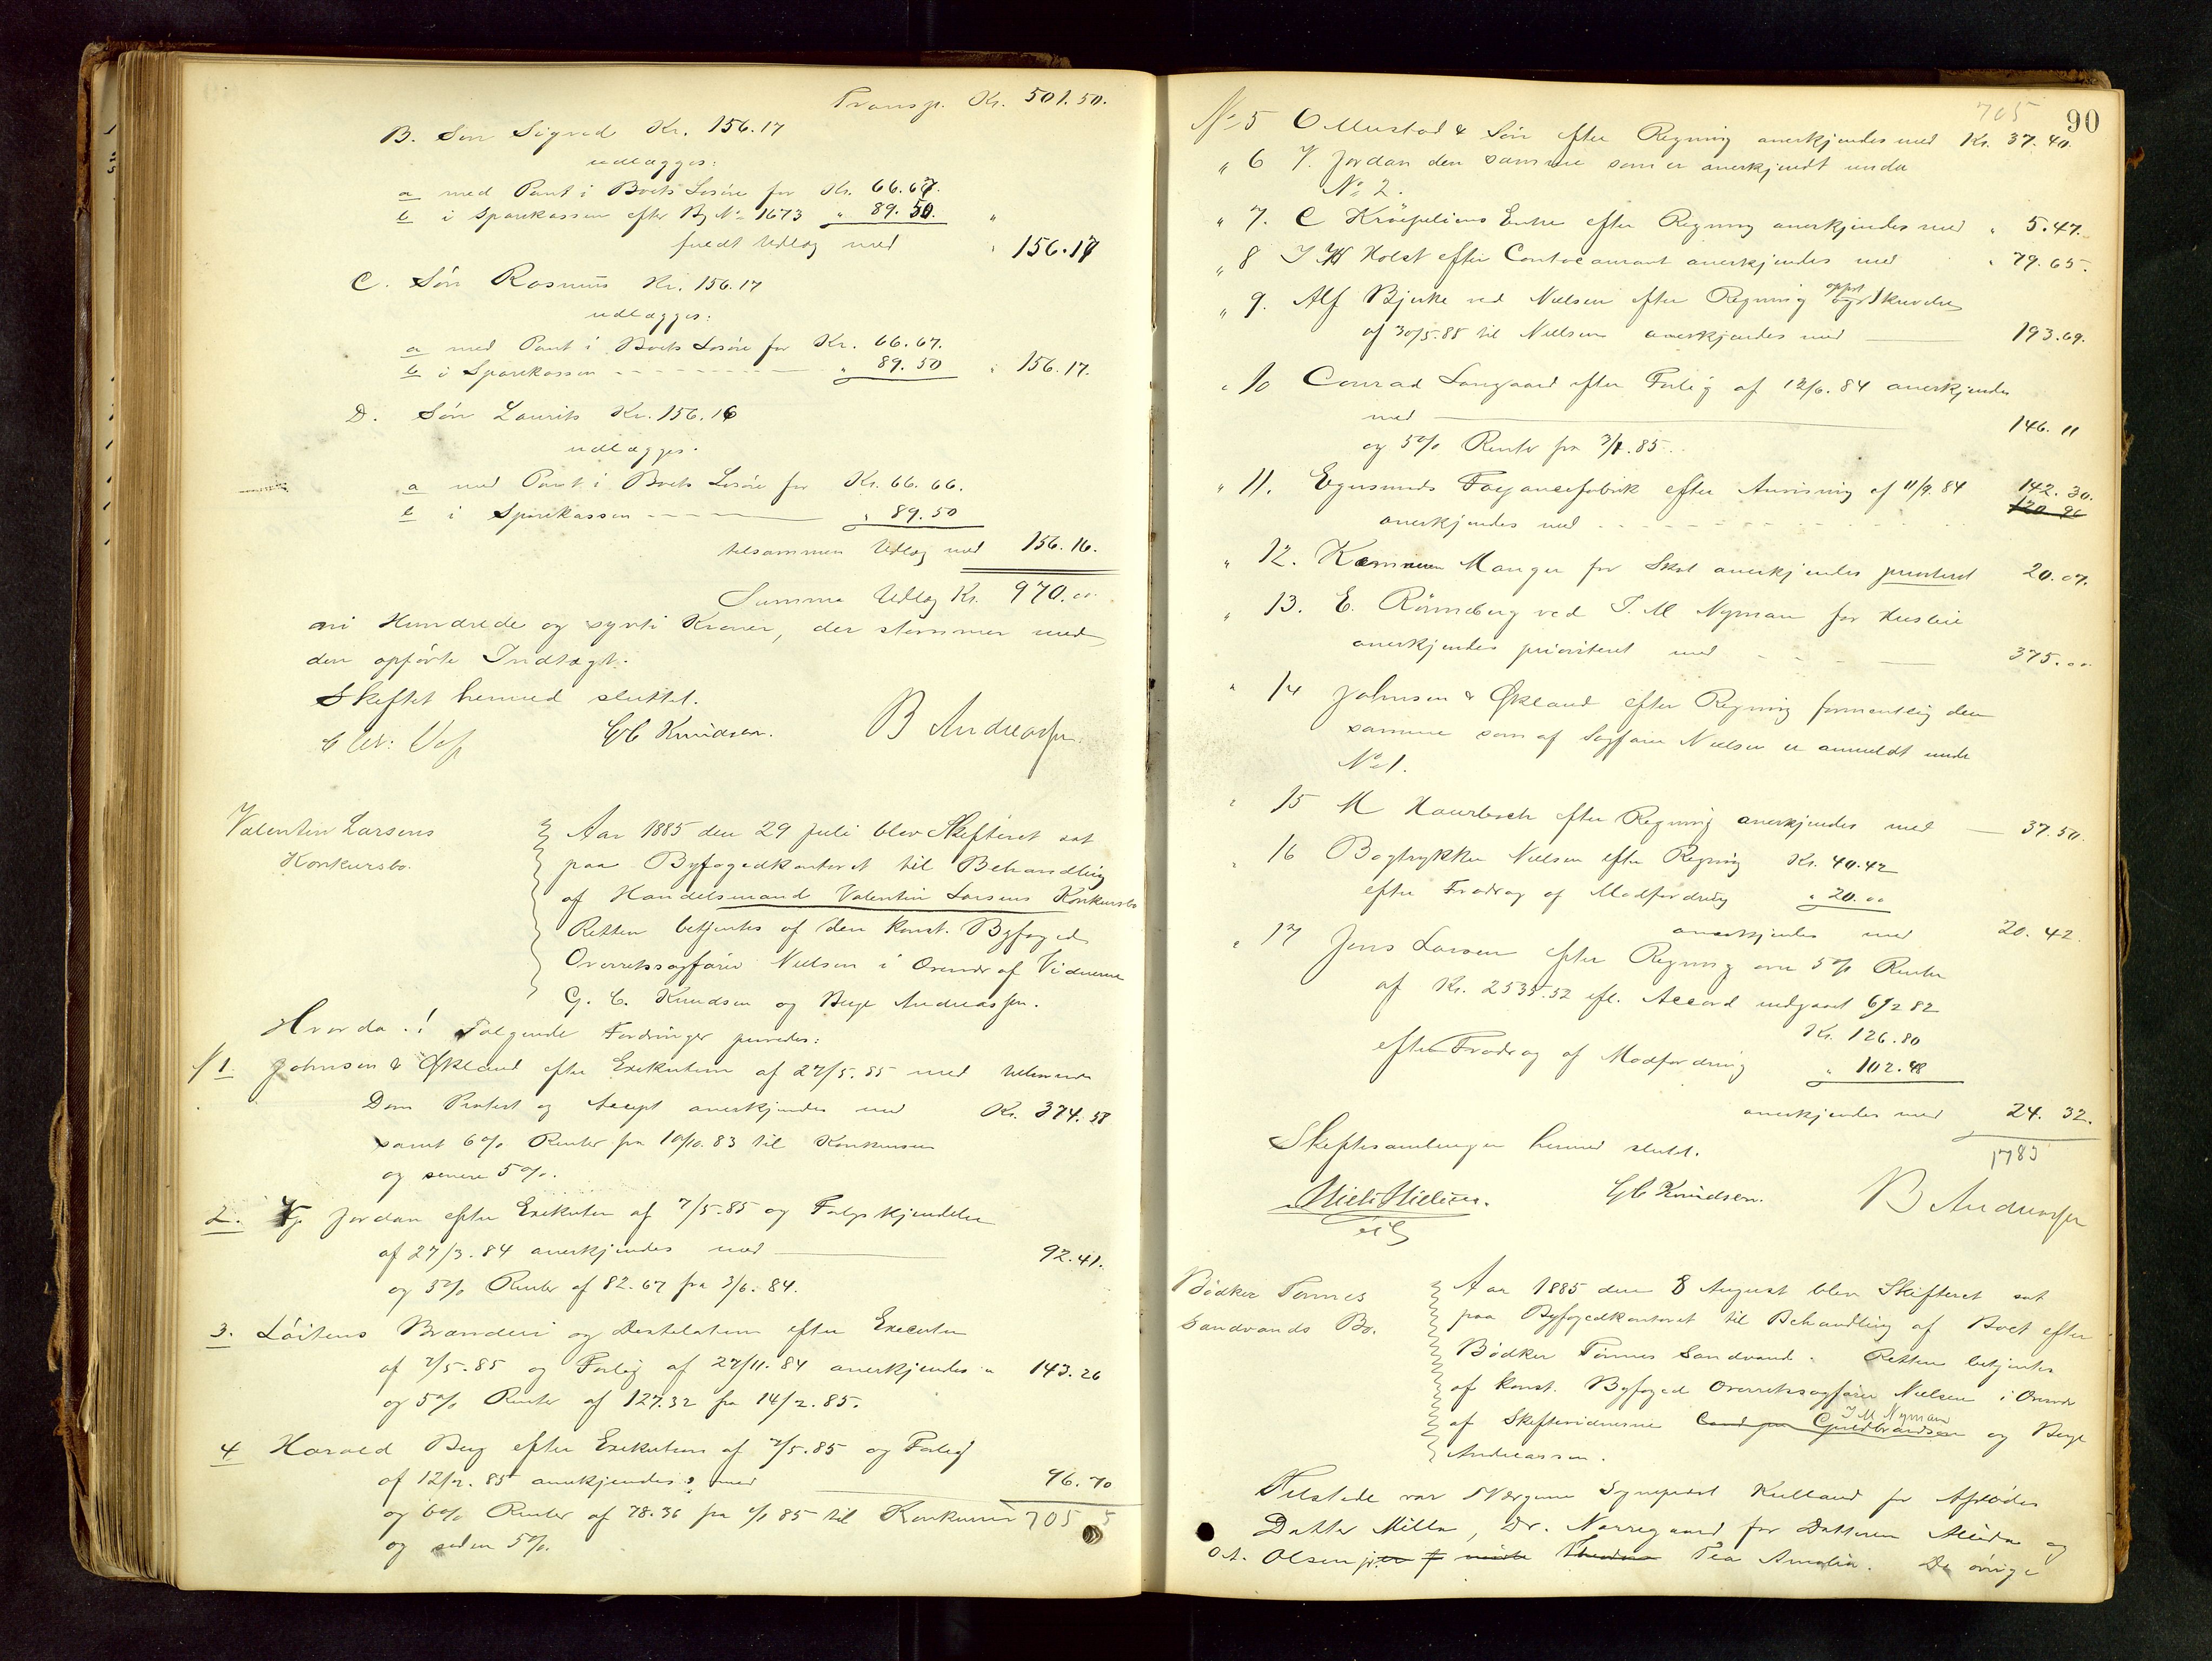 Transp. Kr. 501.50.
B. Søn Sigvard Kr. 156.17
udlægges:
a med Pant i Boets Løsøre for Kr. 66.67.
b i Sparekassen efter Bg No 1673 " 89.50. "
fuldt Udlæg med " 156.17
C. Søn Rasmus Kr. 156.17
udlægges:
a med Pant i Boets Løsøre for Kr. 66.67.
b i Sparekassen " 89.50 " 156.17.
D. Søn Laurits Kr. 156.16
udlægges.
a med Pant i Boets Løsøre for Kr. 66.66.
b i Sparekassen " 89.50
tilsammen Udlæg med 156.16.
Summa Udlæg Kr. 970.00
ni Hundrede og sytti Kroner, der stemmer med
den opførte Indtægt.
Skiftet hermed sluttet.
G C Knudsen. B Andreassen.
Valentin Larsens
Konkursbo.
Aar 1885 den 29 Juli blev Skifteret sat
paa Byfogedkontoret til Behandling
af Handelsmand Valentin Larsens Konkursbo
Retten betjentes af den konst. Byfoged
Overretssagfører Nielsen i Overvær af Vidnerne
G. C. Knudsen og Berge Andreassen.
Hvorda.! Følgende Fordringer prøvedes:
No 1. Johnsen & Økland efter Exekution af 27/5.85 med
Dom Protest og Accept anerkjendes med Kr. 374.58
samt 6% Renter fra 10/10.83 til Konkursen
og senere 5%.
2. Jordan efter Exekution af 7/5-85 og
af 27/3.84 anerkjendes med 92.41.
og 5% Renter af 82.67 fra 3/6.84.
3. Løitens Brænderi og Destelation efter Execution
af 7/5.85 og Forlig af 27/11.84 anerkjendes " 143.26
og 5% Renter af 127.32 fra 14/2.85.
4 Harald Berg efter Exekution af 7/5.85 og Forlig
af 12/2.85 anerkjendes med 96.70
og 6% Renter af 78.36 fra 85 til Konkursen 705
og siden 5%.
705 90
No 5 O Mustad & Søn efter Regning anerkjendes med Kr. 37.40.
" 6 Jordan den samme som er anerkjendt under
No 2.
" 7. C Kröepeliens Enke efter Regning anerkjendes med " 5.47.
" 8 Holst efter Contocourant anerkjendes med " 79.65.
" 9. Alf Bjerke ved Nielsen efter Regning
af 30/5.85 til Nielsen anerkjendes med 193.69.
" 10 Conrad Langaard efter Forlig af 12/6.84 anerkjendes
med 146.11
og 5% Renter fra 3/1.85.
" 11. Egersunds Fayancefabrik efter Anvisning af 11/9.84 142.30.
anerkjendes med 120.90
" 12. Kæmneren Manger for Skat anerkjendes prioriteret 20.07.
" 13. E. Rönneberg ved T. M Nyman for Husleie
anerkjendes prioriteret med 375.00
" 14 Johnsen & Økland efter Regning formentlig den
samme som af Sagfører Nielsen er anmeldt under
No 1.
" 15 M Haurbech efter Regning anerkjendes med 37.50.
" 16 Bogtrykker Nielsen efter Regning Kr. 40.42
efter Fradrag af Modfordring " 20.00
anerkjendes med 20.42.
" 17 Jens Larsen efter Regning over 5% Renter
af Kr. 2535.52 efl. Accord indgaaet 6/2 82
Kr. 126.80
efter Fradrag af Modfordring " 102.48
anerkjendes med 24.32.
Skiftesamlingen hermed slutt. 1783
Niels Nielsen. G C Knudsen. B Andreassen
Bødker Tønnes
Sandvands Bo.
Aar 1885 den 8 August blev Skifteret sat
paa Byfogedkontoret til Behandling af Boet efter
Bødker Tønnes Sandvand. Retten betjentes
af konst. Byfoged Overretssagfører Nielsen i Overvær
T M Nyman
af Skiftevidnerne Gundbrandsen og Berge
Andreassen.
Tilstede var Værgerne Kulland for Afdødes
Datter Milla, Dr. Norregaard for Datteren Alida og
O.A. Olsen Tea Amalia. De øvrige